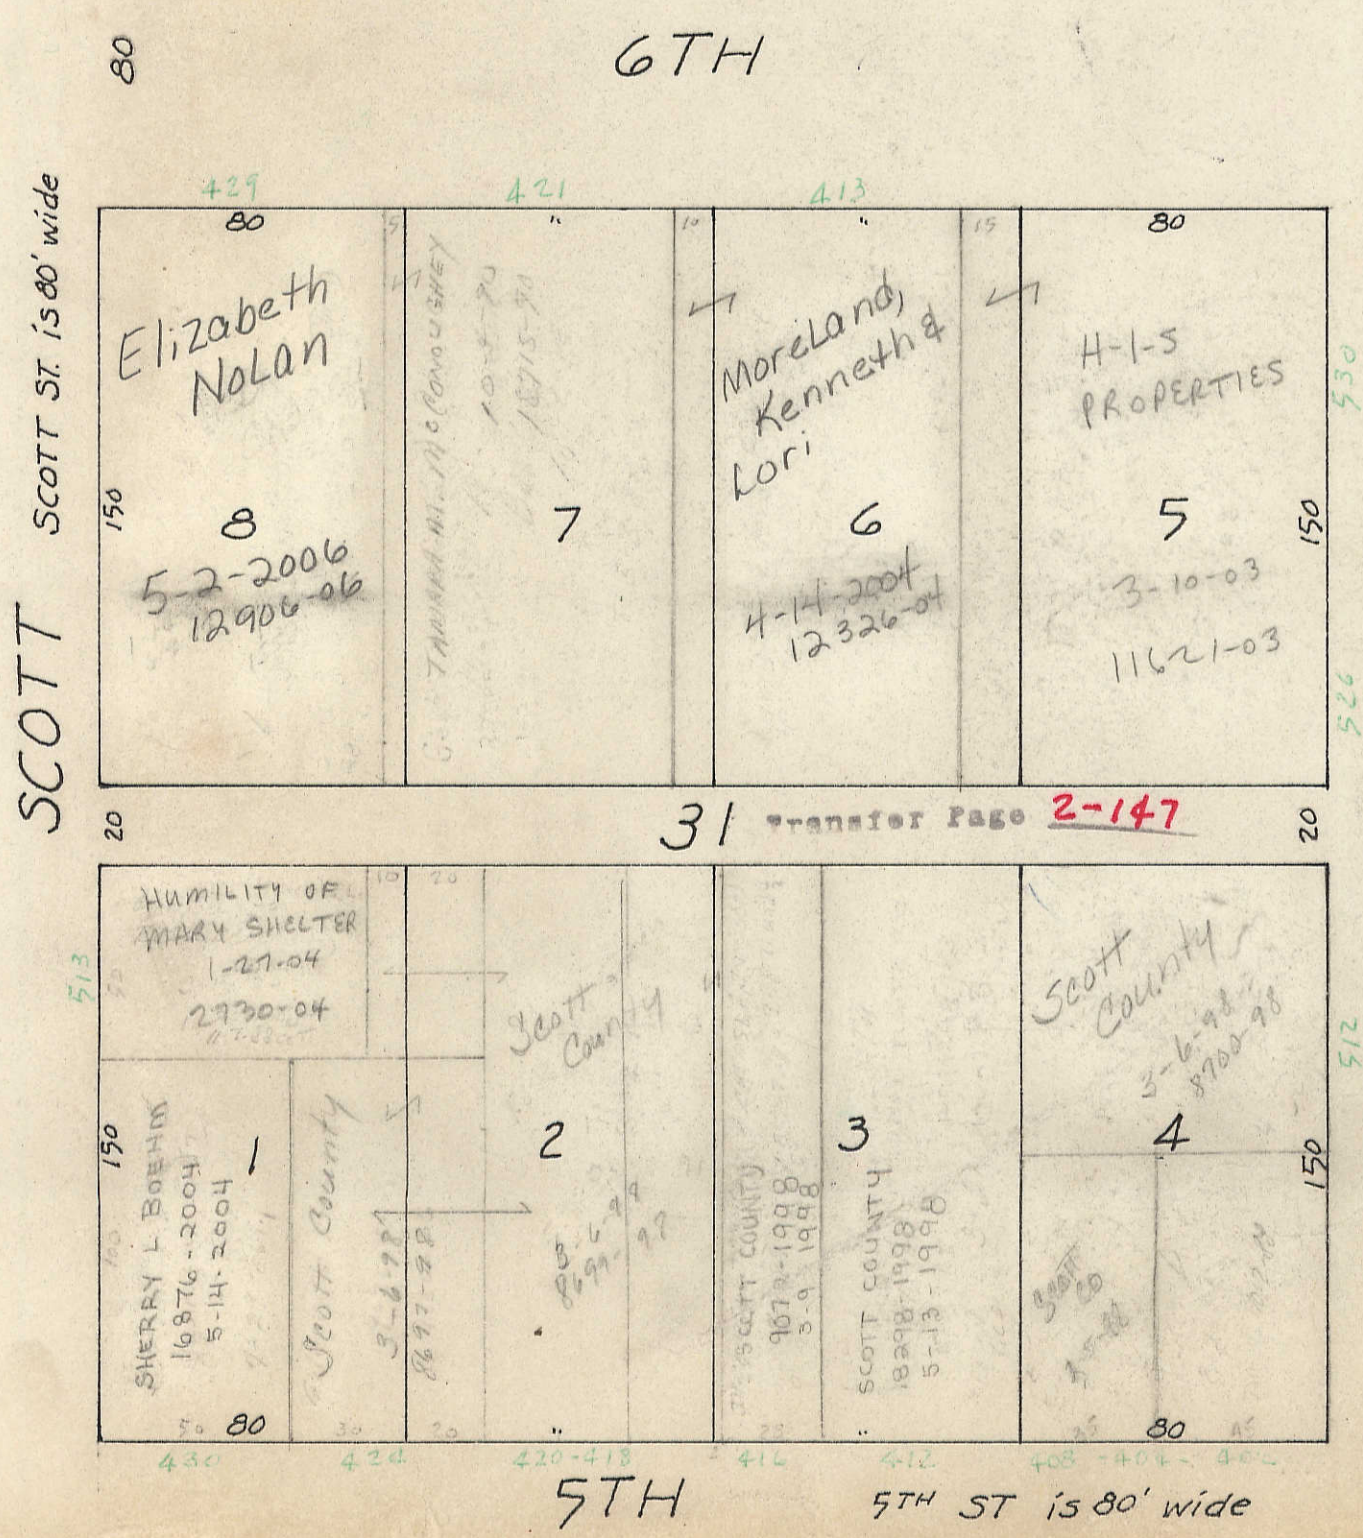 80
6TH
SCOTT ST. is 80' wide
SCOTT
429
421
413
80
5
"
10
"
15
80
Elizabeth
Nolan
150
8
5-2-2006
12906-06
7
MoreLand,
Kenneth &
Lori
6
4-14-2004
12326-04
H-I-S
PROPERTIES
5
3-10-03
11621-03
150
530
526
20
31
Transfer Page 2-147
20
HUMILITY OF
MARY SHELTER
1-27-04
2730-04
10
20
513
150
SHERRY L BOEHM
16876-2004
5-14-2004
1
50
80
Scott County
3-6-98
8697-98
30
20
Scott
County
2
"
SCOTT COUNTY
9072-1998
3-9-1998
3
SCOTT COUNTY
18298-1998
5-13-1998
"
Scott
County
3-6-98
8700-98
4
Scott
Co
80
150
512
430
424
420-418
416
412
408-404-402
5TH
5TH ST is 80' wide